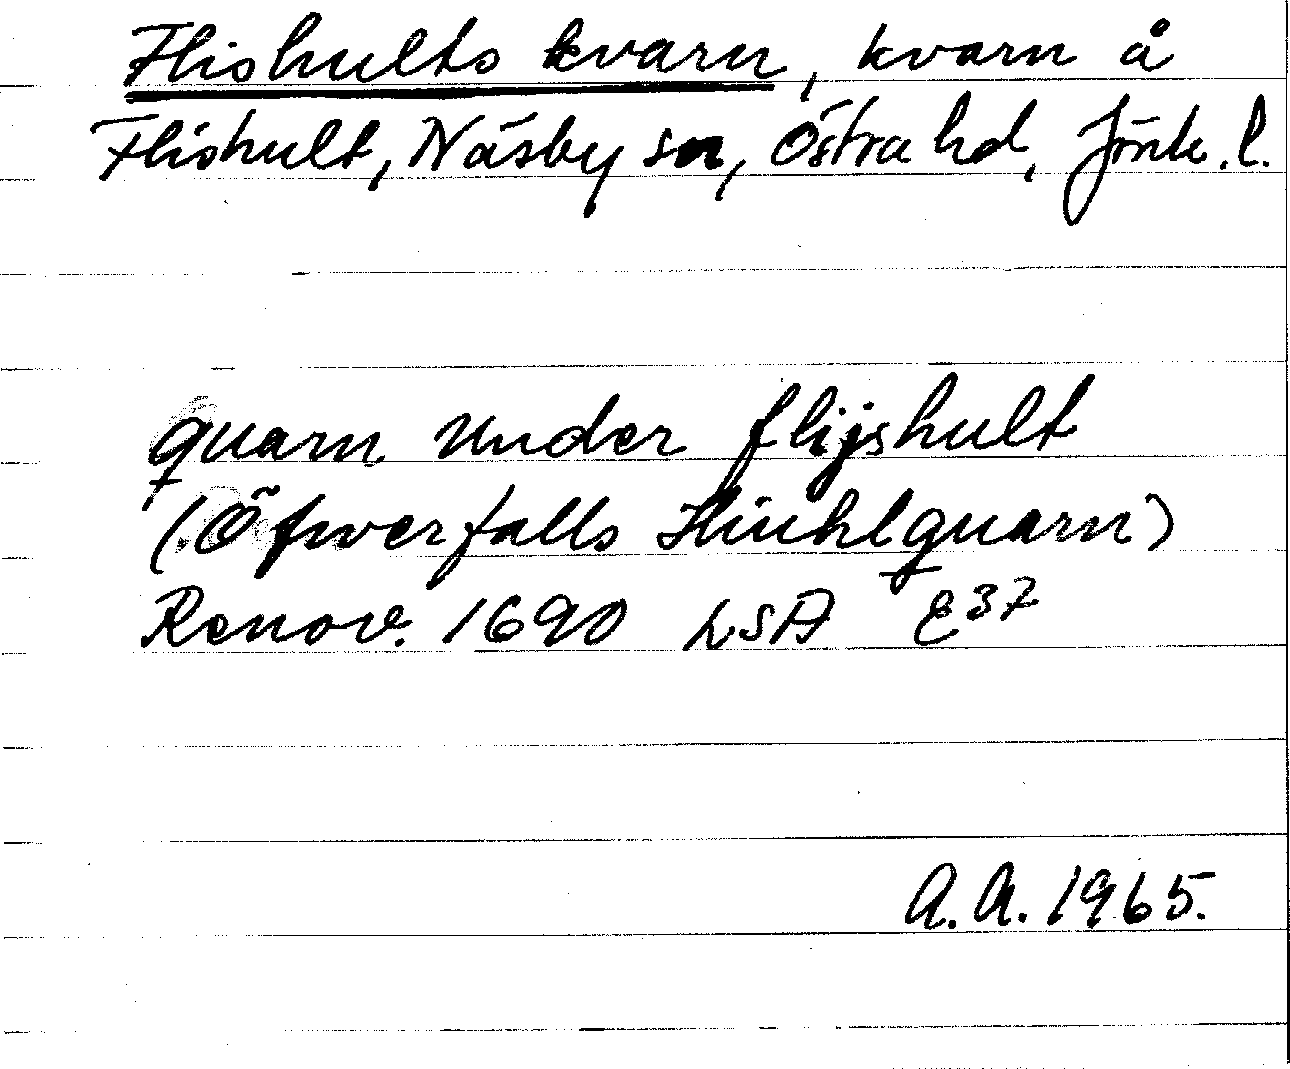 Flishults kvarn, kvarn å
Flishult, Näsby sn, Östra hd, Jönk. l.
quarn Under flijshult
(Öfwerfalls Hiuhlquarn)
Renov. 1690 LSA E37
A.A. 1965.